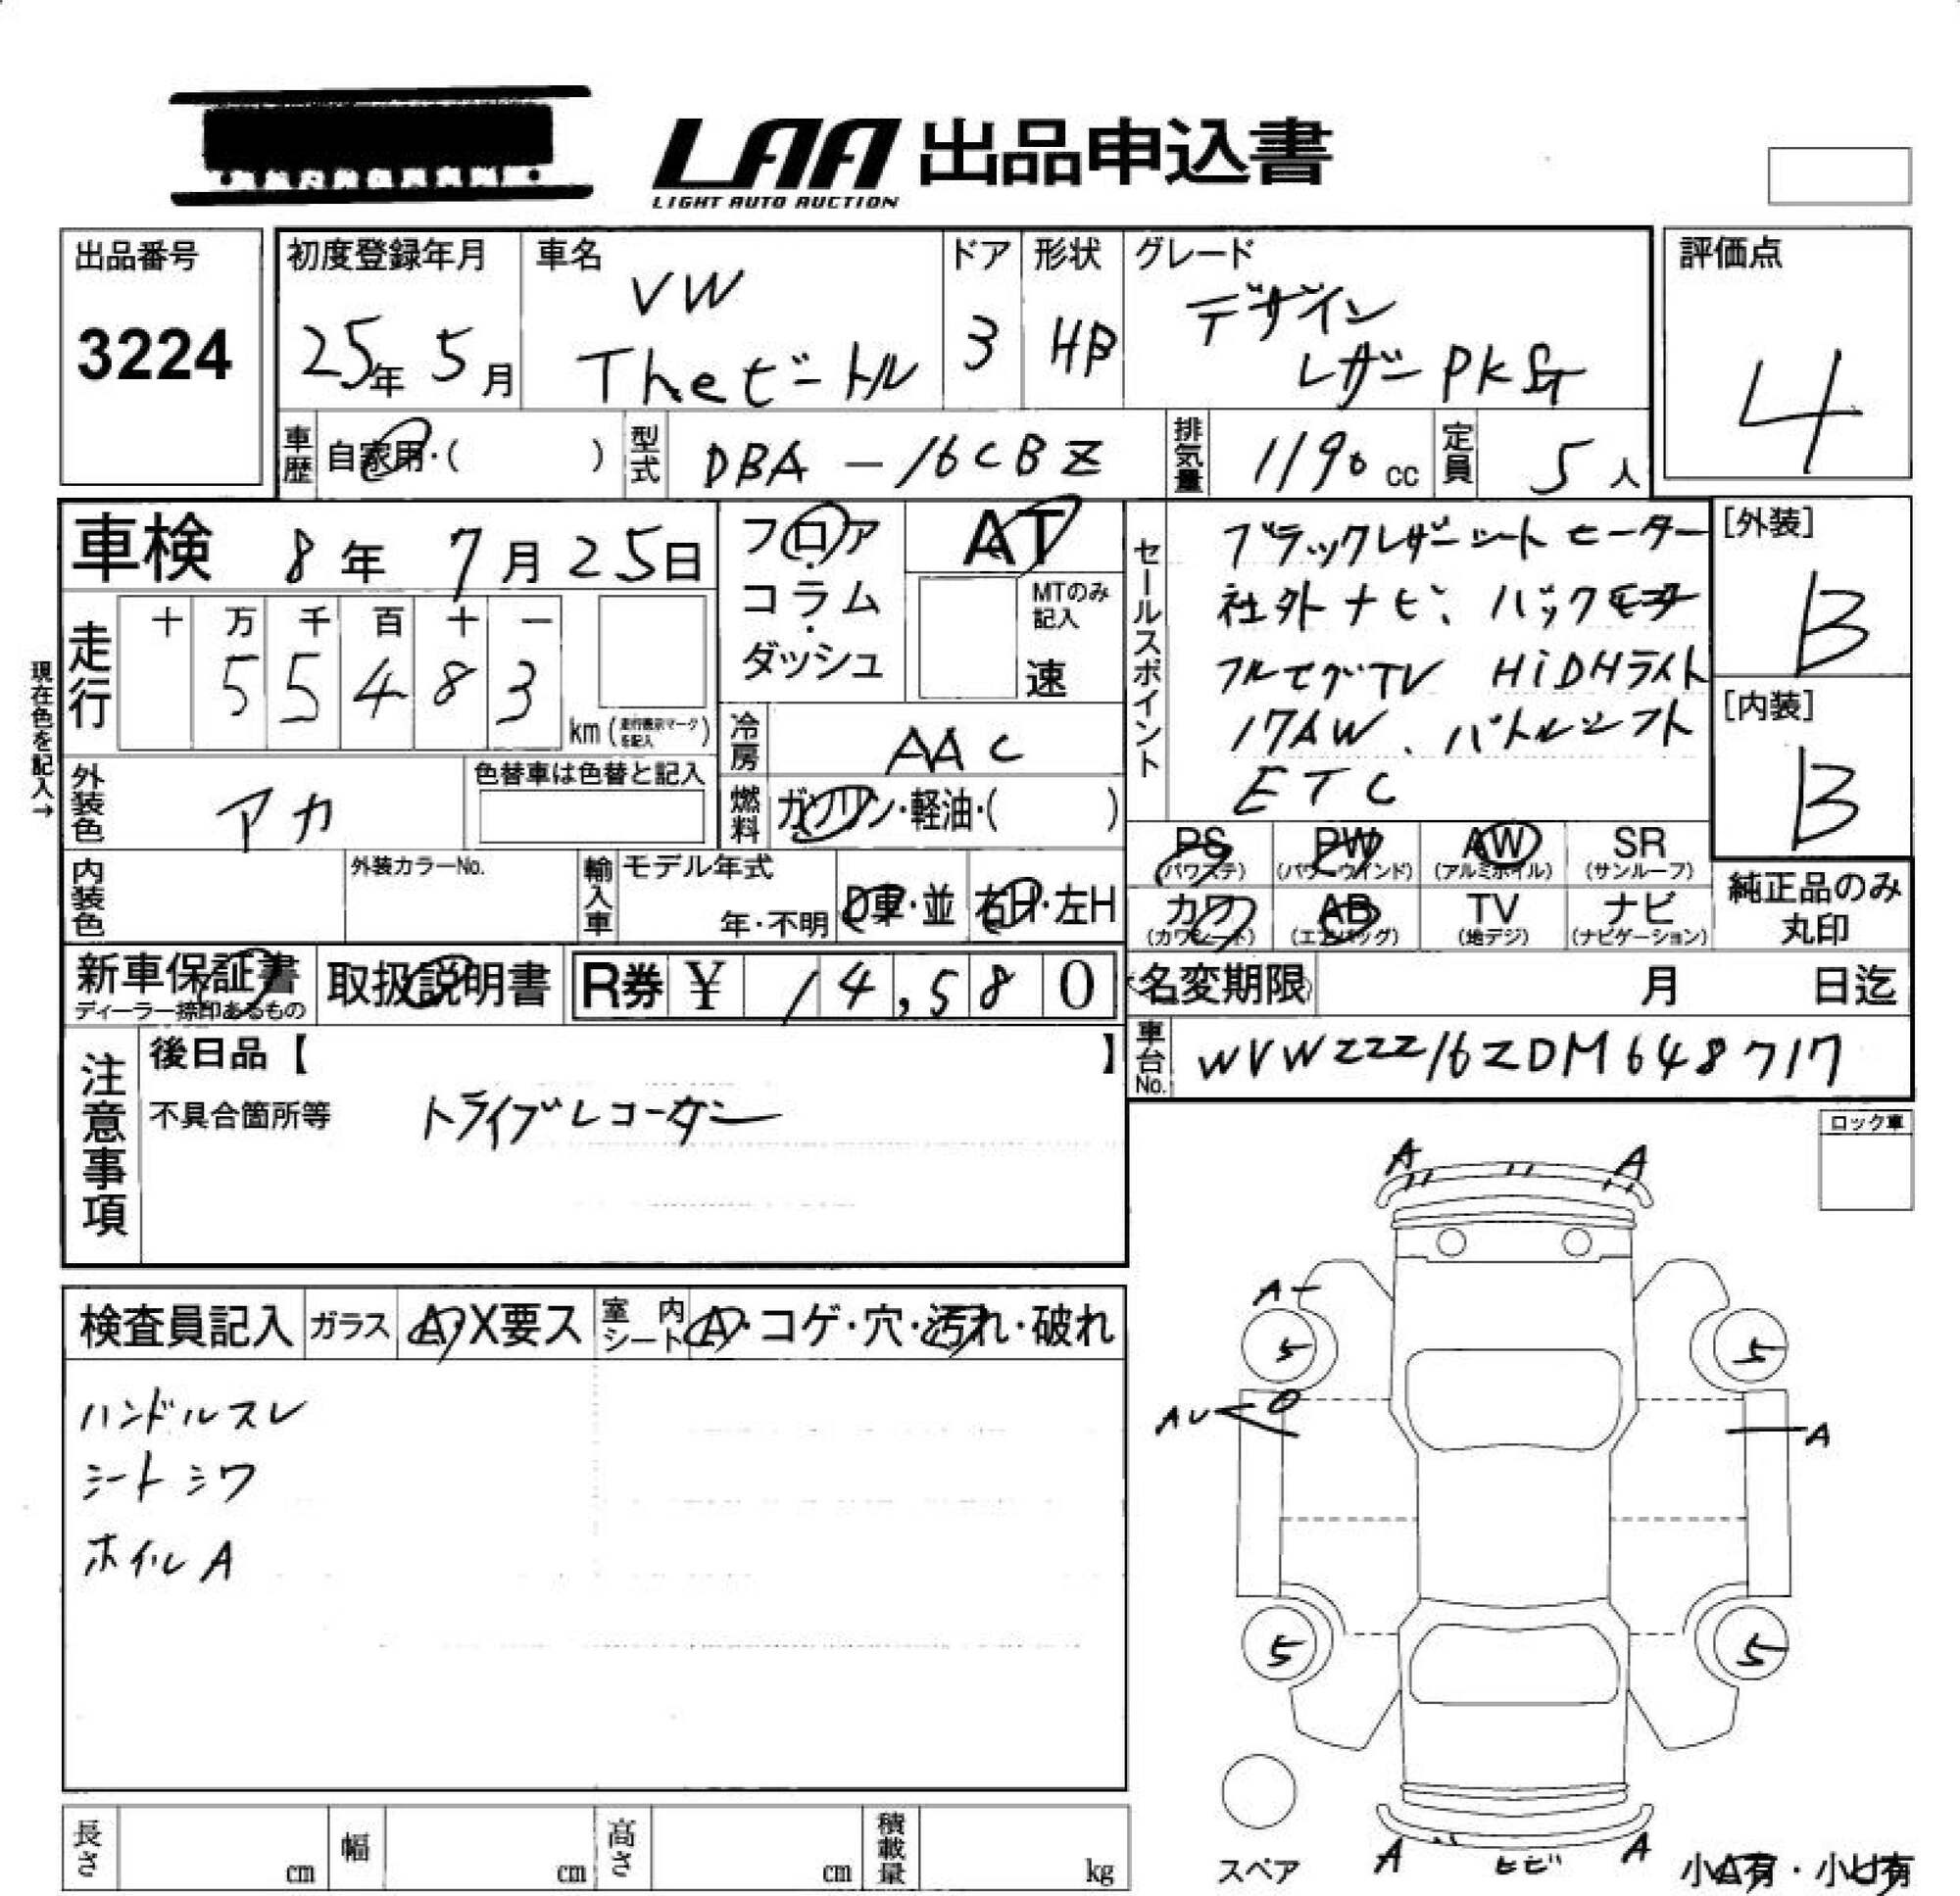 LAA 出品申込書
LIGHT AUTO AUCTION
出品番号
3224
初度登録年月
25年 5月
車名
VW
Theビートル
ドア
3
形状
HB
グレード
デザイン
レザーPKG
評価点
4
車歴
自家用・( )
型式
DBA-16CBZ
排気量
1190cc
定員
5人
車検 8年 7月25日
走行
十 万 千 百 十 一
5 5 4 8 3
km (走行表示マークを記入)
現在色を記入→
外装色
アカ
色替車は色替と記入
内装色
外装カラーNo.
フロア
コラム
ダッシュ
AT
MTのみ
記入
速
冷房
AAC
燃料
ガソリン・軽油・( )
輸入車
モデル年式
年・不明
D車・並
右H・左H
セールスポイント
ブラックレザーシートヒーター
社外ナビ、バックモニター
フルセグTV HiDHライト
17AW、パドルシフト
ETC
[外装]
B
[内装]
B
PS
(パワステ)
PW
(パワーウインド)
AW
(アルミホイル)
SR
(サンルーフ)
カワ
(カワシート)
AB
(エアバッグ)
TV
(地デジ)
ナビ
(ナビゲーション)
純正品のみ
丸印
新車保証書
ディーラー捺印あるもの
取扱説明書
R券 ¥ 14,580
名変期限 月 日迄
車台No.
WVWZZZ16ZDM648717
注意事項
後日品【 】
不具合箇所等
トライブレコーダー
ロック車
検査員記入
ガラス
A・X要ス
室内シート
A・コゲ・穴・汚れ・破れ
ハンドルスレ
シートシワ
ホイルA
A A
A
5 5
AU A
5 5
スペア
A ヒビ A
小A有・小U有
長さ cm
幅 cm
高さ cm
積載量 kg